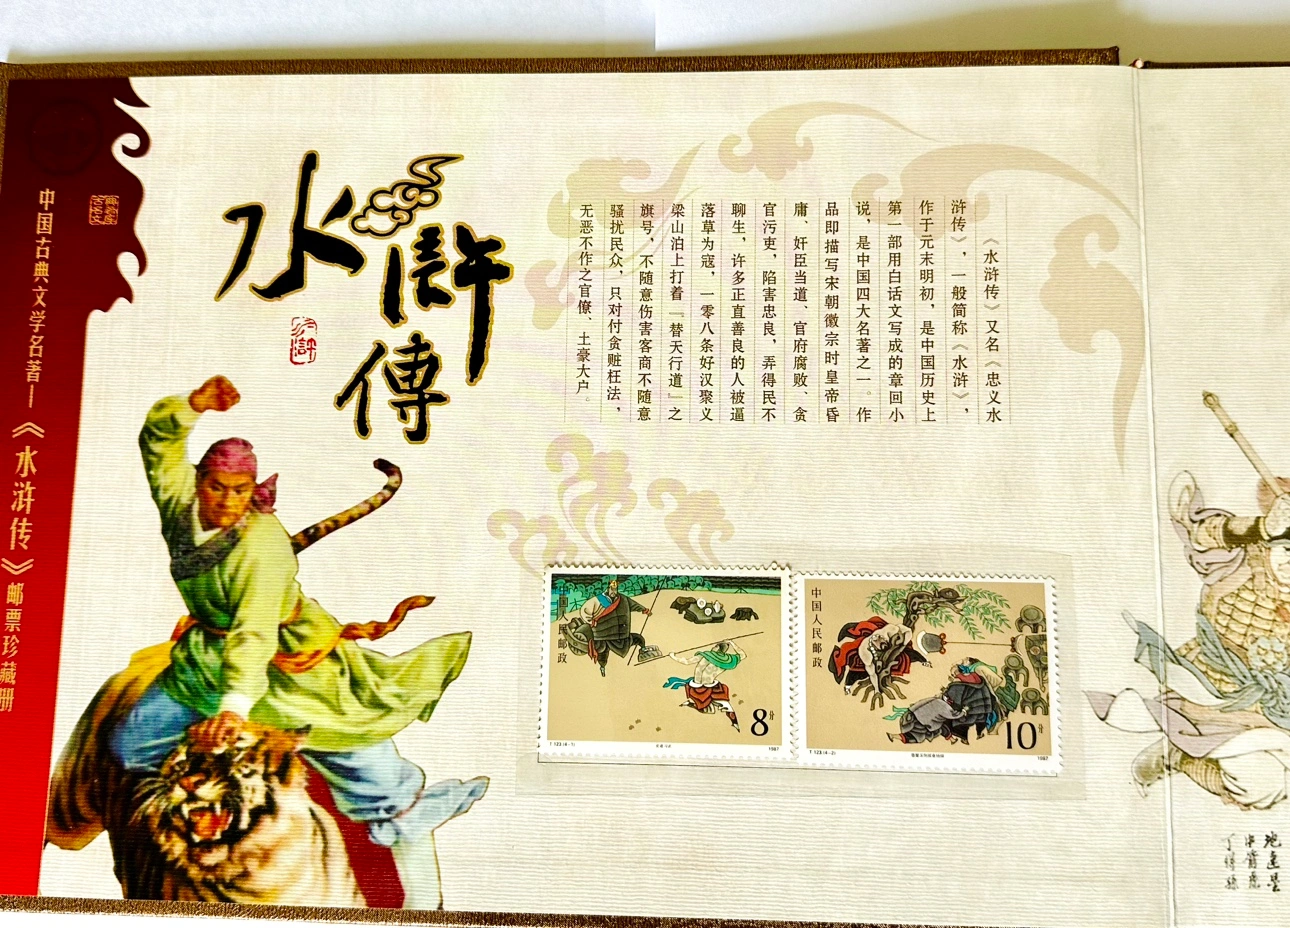 中国古典文学名著—《水浒传》邮票珍藏册
水滸傳
水滸
《水浒传》又名《忠义水
浒传》，一般简称《水浒》，
作于元末明初，是中国历史上
第一部用白话文写成的章回小
说，是中国四大名著之一。作
品即描写宋朝徽宗时皇帝昏
庸、奸臣当道、官府腐败、贪
官污吏，陷害忠良，弄得民不
聊生，许多正直善良的人被逼
落草为寇，一零八条好汉聚义
梁山泊上打着『替天行道』之
旗号，不随意伤害客商不随意
骚扰民众，只对付贪赃枉法，
无恶不作之官僚、土豪大户。
中国人民邮政
8分
T 123.(4-1)
1987
中国人民邮政
10分
T 123.(4-2)
1987
地速星
中箭虎
丁得孙